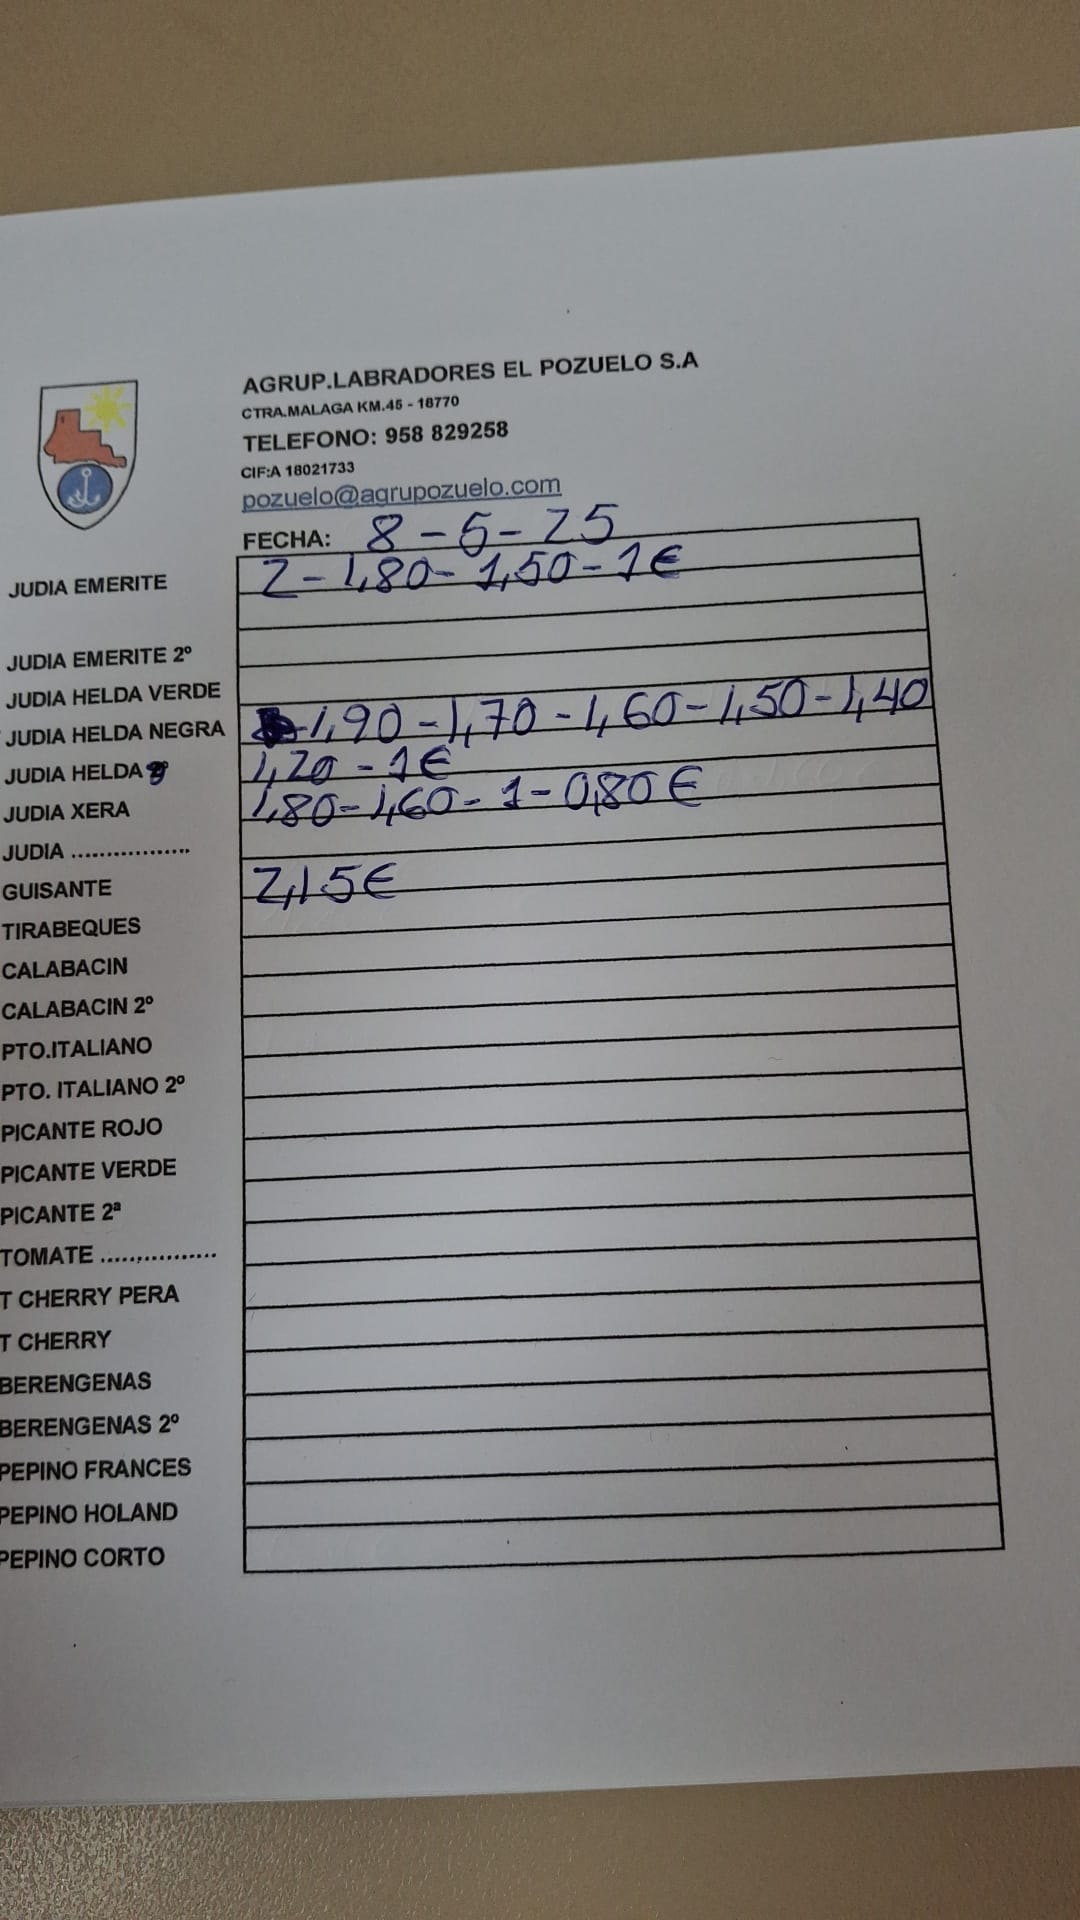 AGRUP.LABRADORES EL POZUELO S.A
CTRA.MALAGA KM.45 - 18770
TELEFONO: 958 829258
CIF:A 18021733
pozuelo@agrupozuelo.com
FECHA: 8-5-25
JUDIA EMERITE 2-1,80-1,50-1€
JUDIA EMERITE 2º
JUDIA HELDA VERDE
JUDIA HELDA NEGRA -1,90-1,70-1,60-1,50-1,40
JUDIA HELDA 1,20-1€
JUDIA XERA 1,80-1,60-1-0,80€
JUDIA .................
GUISANTE 2,15€
TIRABEQUES
CALABACIN
CALABACIN 2º
PTO.ITALIANO
PTO. ITALIANO 2º
PICANTE ROJO
PICANTE VERDE
PICANTE 2ª
TOMATE ................
T CHERRY PERA
T CHERRY
BERENGENAS
BERENGENAS 2º
PEPINO FRANCES
PEPINO HOLAND
PEPINO CORTO